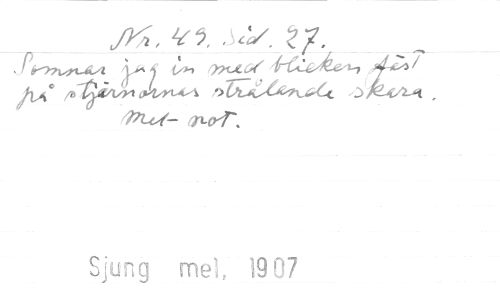 Nr. 49. Sid. 27.
Somnar jag in med blicken fäst
på stjärnornas strålande skara.
Mel- not.
Sjung mel, 1907